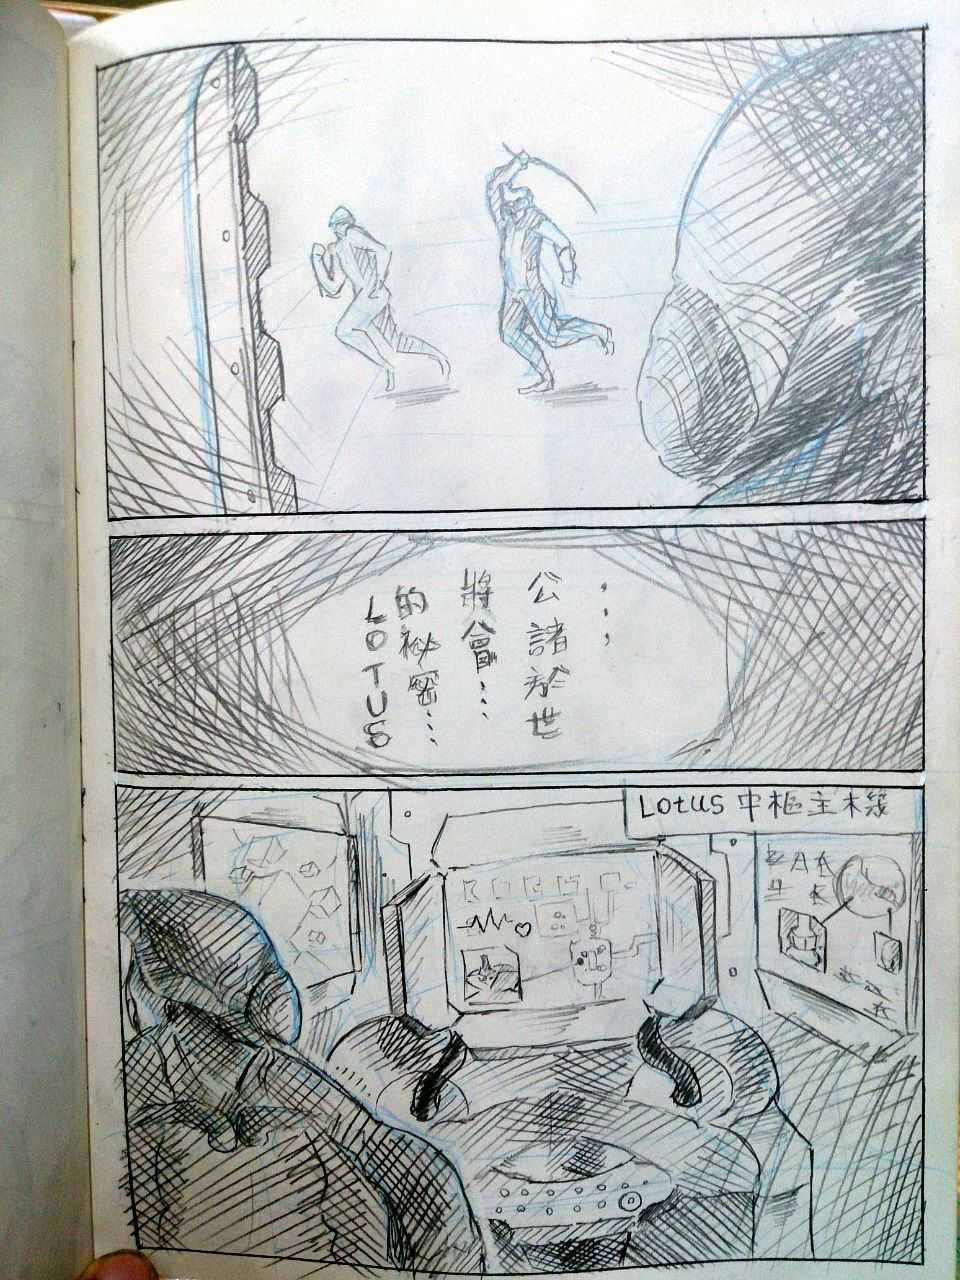 LOTUS
的秘密...
將會...
公諸於世
...
Lotus 中樞主機